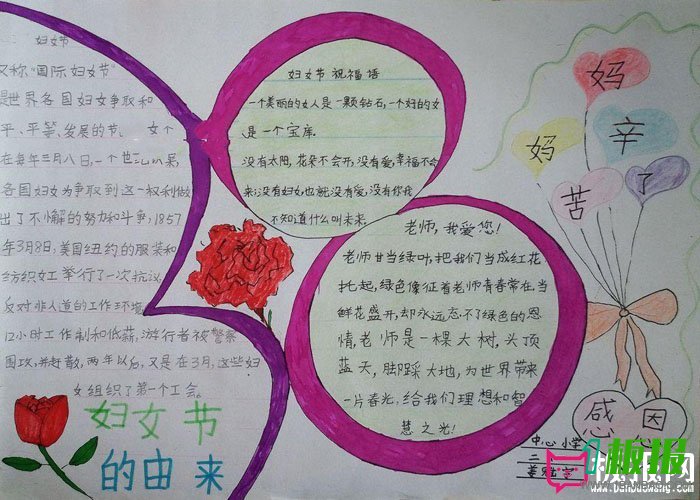 妇女节
又称"国际妇女节"
是世界各国妇女争取和
平、平等、发展的节、
在每年三月八日,一个世
各国妇女为争取到这一权利做
出了不懈的努力和斗争,1857
年3月8日,美国纽约的服装和
纺织女工举行了一次抗议
反对非人道的工作环境
12小时工作制和低薪,游行者被警察
围攻,并赶散,两年以后,又是在3月,这些妇
女组织了第一个工会。
妇女节
的由来
妇女节 祝福语
一个美丽的女人是一颗钻石,一个好的女
是一个宝库。
没有太阳,花朵不会开,没有爱,幸福不会
来;没有妇女也就没有爱,没有你我
不知道什么叫未来。
老师,我爱您!
老师甘当绿叶,把我们当成红花
托起,绿色像征着老师青春常在,当
鲜花盛开,却永远忘不了绿色的恩
情,老师是一棵大树,头顶
蓝天,脚踩大地,为世界带来
一片春光,给我们理想和智
慧之光!
妈
妈
辛
苦
了
感恩
中心小学
板报网